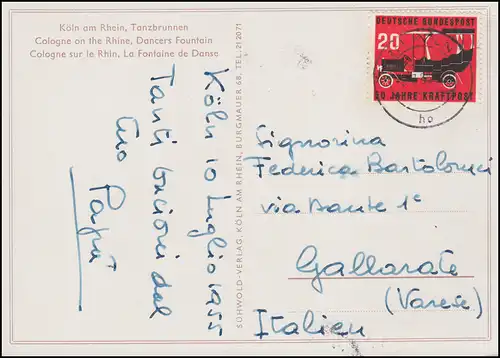 Köln am Rhein, Tanzbrunnen
Cologne on the Rhine, Dancers Fountain
Cologne sur le Rhin, La Fontaine de Danse
Köln 10 luglio 1955
Tanti bacioni dal
tuo Papà
SCHWOLD-VERLAG, KÖLN AM RHEIN, BURGMAUER 68, TEL. 212071
DEUTSCHE BUNDESPOST
20
50 JAHRE KRAFTPOST
ho
Signorina
Federica Bartolomei
via Dante 1c
Gallarate
(Varese)
Italien